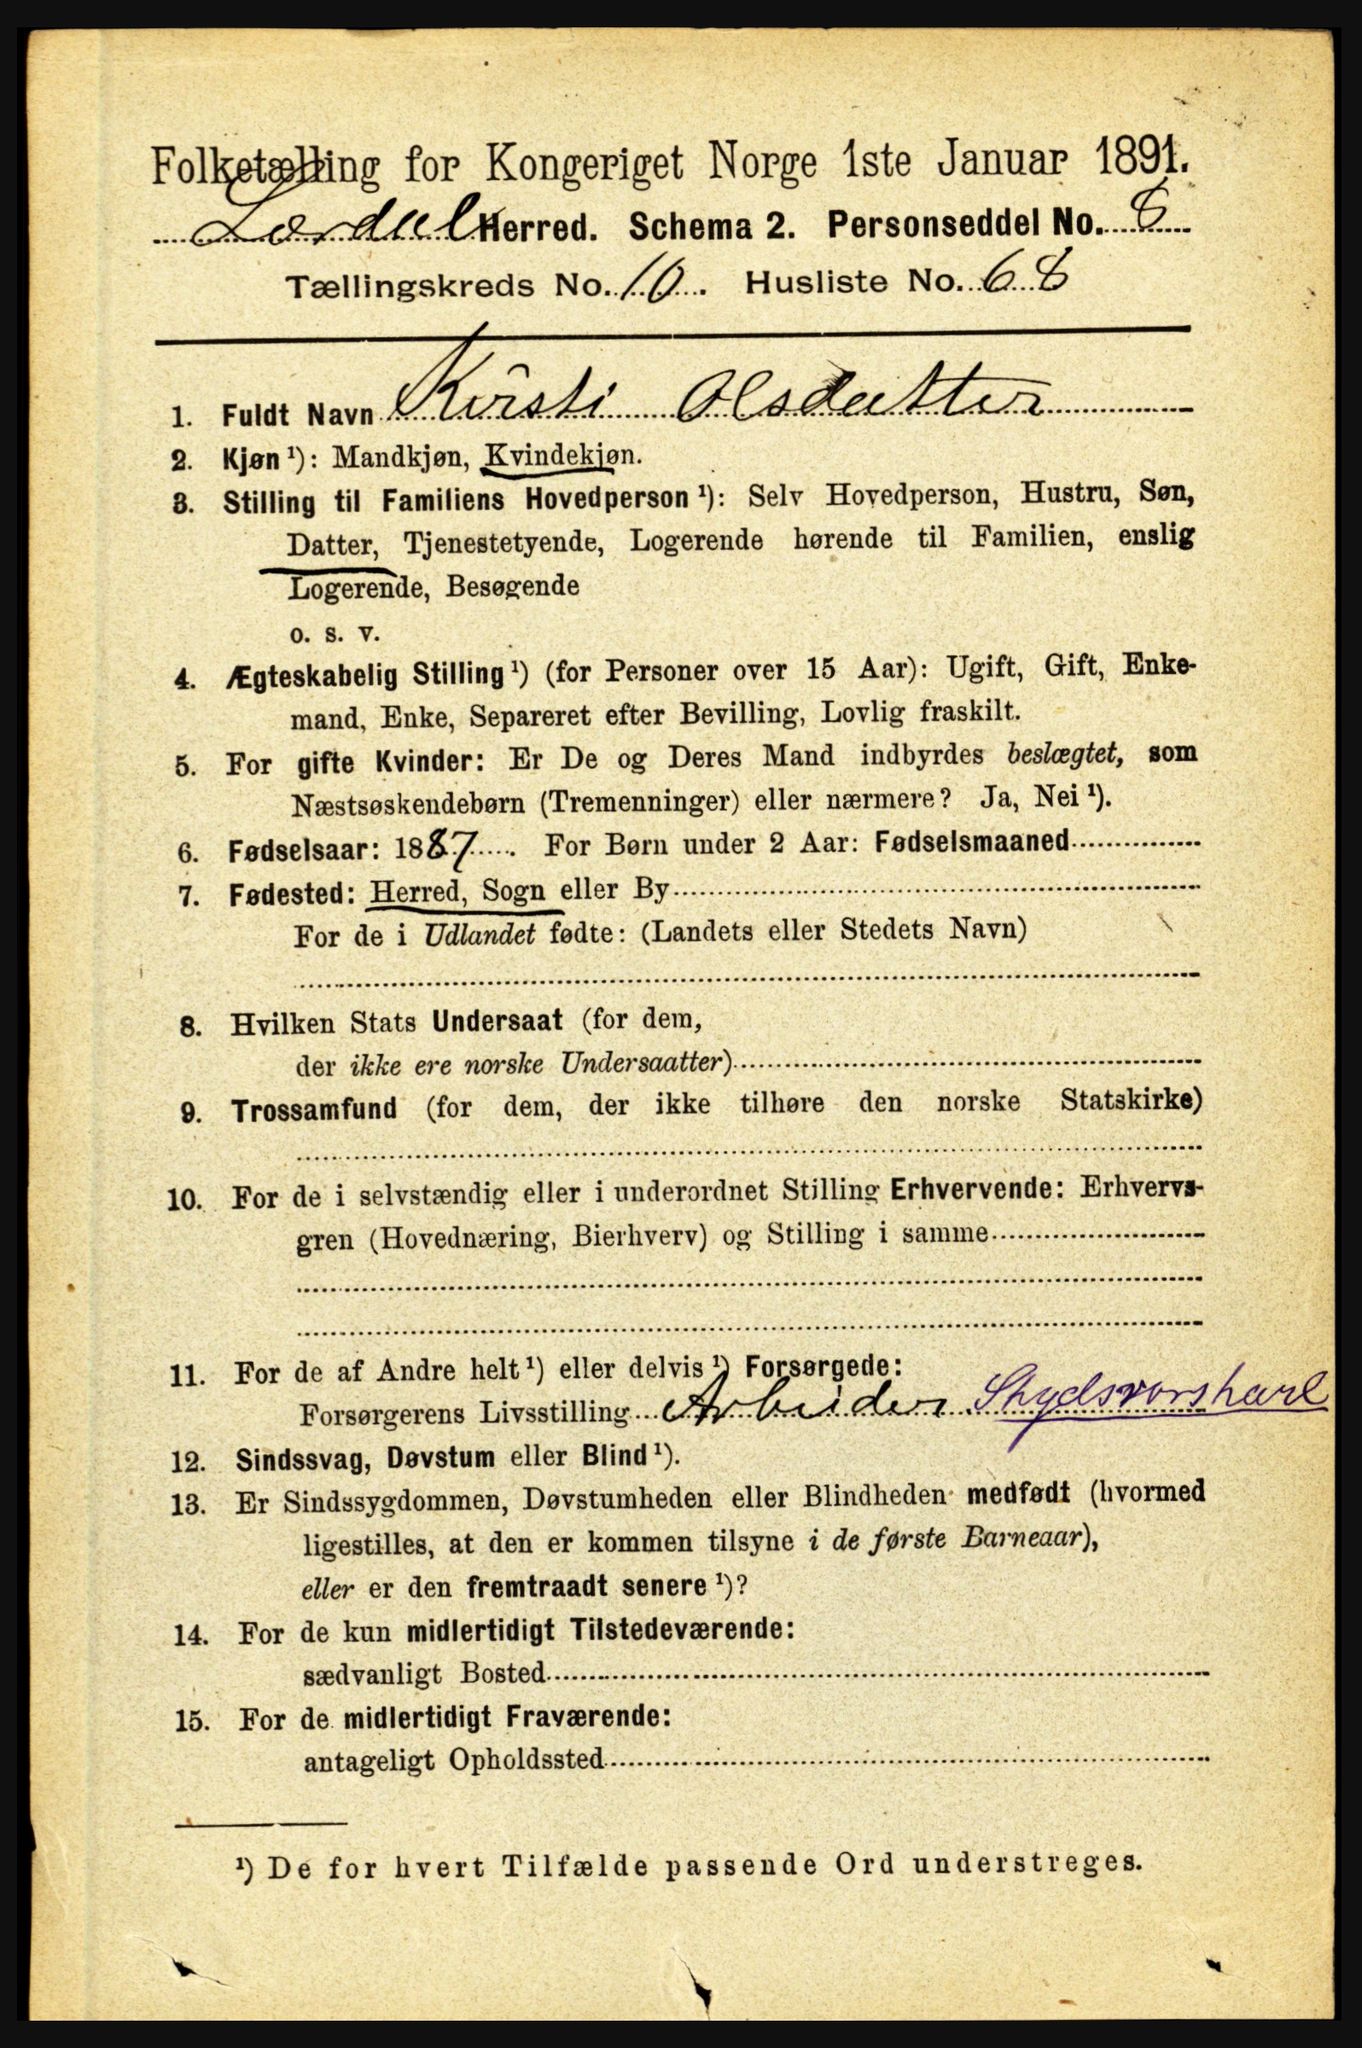 Folketælling for Kongeriget Norge 1ste Januar 1891.
Lærdal Herred. Schema 2. Personseddel No. 6
Tællingskreds No. 10. Husliste No. 68
1. Fuldt Navn Kirsti Olsdatter
2. Kjøn ¹): Mandkjøn, Kvindekjøn.
3. Stilling til Familiens Hovedperson ¹): Selv Hovedperson, Hustru, Søn,
Datter, Tjenestetyende, Logerende hørende til Familien, enslig
Logerende, Besøgende
o. s. v.
4. Ægteskabelig Stilling ¹) (for Personer over 15 Aar): Ugift, Gift, Enke-
mand, Enke, Separeret efter Bevilling, Lovlig fraskilt.
5. For gifte Kvinder: Er De og Deres Mand indbyrdes beslægtet, som
Næstsøskendebørn (Tremenninger) eller nærmere? Ja, Nei ¹).
6. Fødselsaar: 1887. For Børn under 2 Aar: Fødselsmaaned
7. Fødested: Herred, Sogn eller By
For de i Udlandet fødte: (Landets eller Stedets Navn)
8. Hvilken Stats Undersaat (for dem,
der ikke ere norske Undersaatter)
9. Trossamfund (for dem, der ikke tilhøre den norske Statskirke)
10. For de i selvstændig eller i underordnet Stilling Erhvervende: Erhvervs-
gren (Hovednæring, Bierhverv) og Stilling i samme
11. For de af Andre helt ¹) eller delvis ¹) Forsørgede:
Forsørgerens Livsstilling Arbeider Skydsvorskarl
12. Sindssvag, Døvstum eller Blind ¹).
13. Er Sindssygdommen, Døvstumheden eller Blindheden medfødt (hvormed
ligestilles, at den er kommen tilsyne i de første Barneaar),
eller er den fremtraadt senere ¹)?
14. For de kun midlertidigt Tilstedeværende:
sædvanligt Bosted
15. For de midlertidigt Fraværende:
antageligt Opholdssted
¹) De for hvert Tilfælde passende Ord understreges.